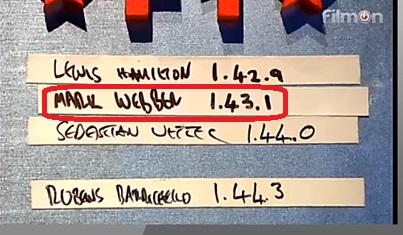 FilmOn
LEWIS HAMILTON 1.42.9
MARK WEBBER 1.43.1
SEBASTIAN VETTEL 1.44.0
RUBENS BARRICHELLO 1.44.3